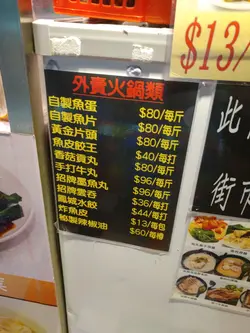 外賣火鍋類
自製魚蛋 $80/每斤
自製魚片 $80/每斤
黃金片頭 $80/每斤
魚皮餃王 $40/每打
香菇貢丸 $80/每斤
手打牛丸 $96/每斤
招牌墨魚丸 $96/每斤
招牌雲吞 $36/每打
鳳城水餃 $44/每打
炸魚皮 $13/每包
秘製辣椒油 $60/每樽
$13/
此
街市